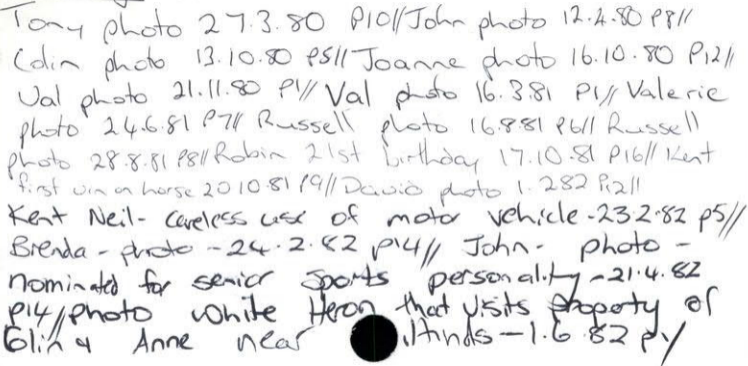 Tony photo 27.3.80 P10//John photo 12.4.80 P8//
Colin photo 13.10.80 P5//Joanne photo 16.10.80 P12//
Val photo 21.11.80 P1//Val photo 16.3.81 P1//Valerie
photo 24.6.81 P7//Russell photo 16.8.81 P6//Russell
photo 28.8.81 P8//Robin 21st birthday 17.10.81 P16//Kent
first win on horse 20 10.81 P9//David photo 1.2.82 P.2//
Kent Neil- careless use of motor vehicle-23.2.82 p5//
Brenda-photo-24.2.82 p14// John- photo -
nominated for senior Sports personality-21.4.82
p14//photo white Heron that visits property of
Colin & Anne near -1.6.82 p